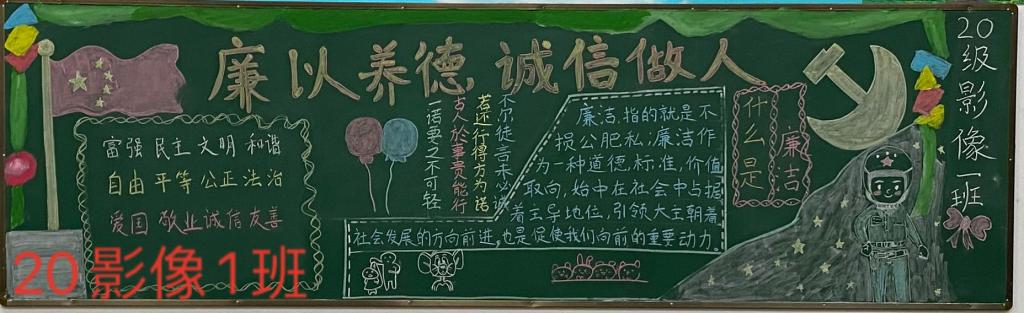 廉以养德 诚信做人
20级影像一班
富强 民主 文明 和谐
自由 平等 公正 法治
爱国 敬业 诚信 友善
古人於事贵能行
若还行得方为诺
一诺要之不可轻
什么是
廉洁
廉洁,指的就是不
损公肥私,廉洁作
为一种道德标准,价值
取向,始中在社会中占据
着主导地位,引领大主朝着
社会发展的方向前进,也是促使我们向前的重要动力。
20影像1班